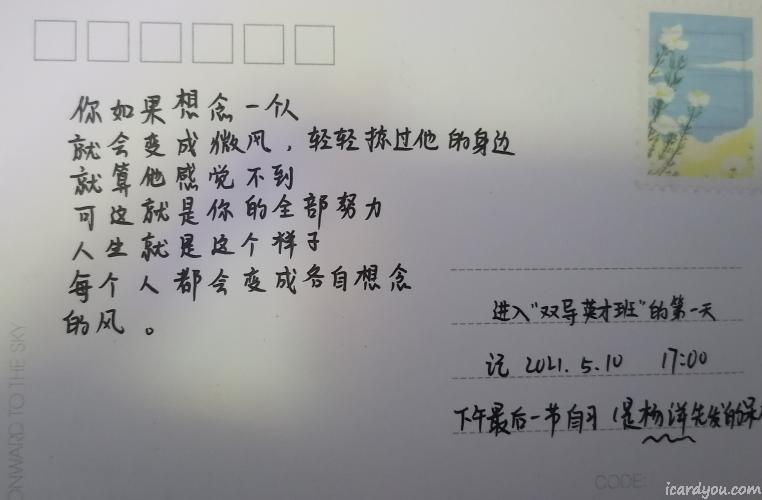 你如果想念一个人
就会变成微风，轻轻掠过他的身边
就算他感觉不到
可这就是你的全部努力
人生就是这个样子
每个人都会变成各自想念
的风。
进入"双导英才班"的第一天
记 2021.5.10 17:00
下午最后一节自习（是杨洋先发的
ONWARD TO THE SKY
CODE:
icardyou.com